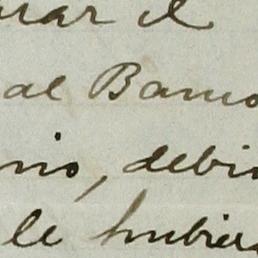 rar el
al Banco
nio, debi
le hubier